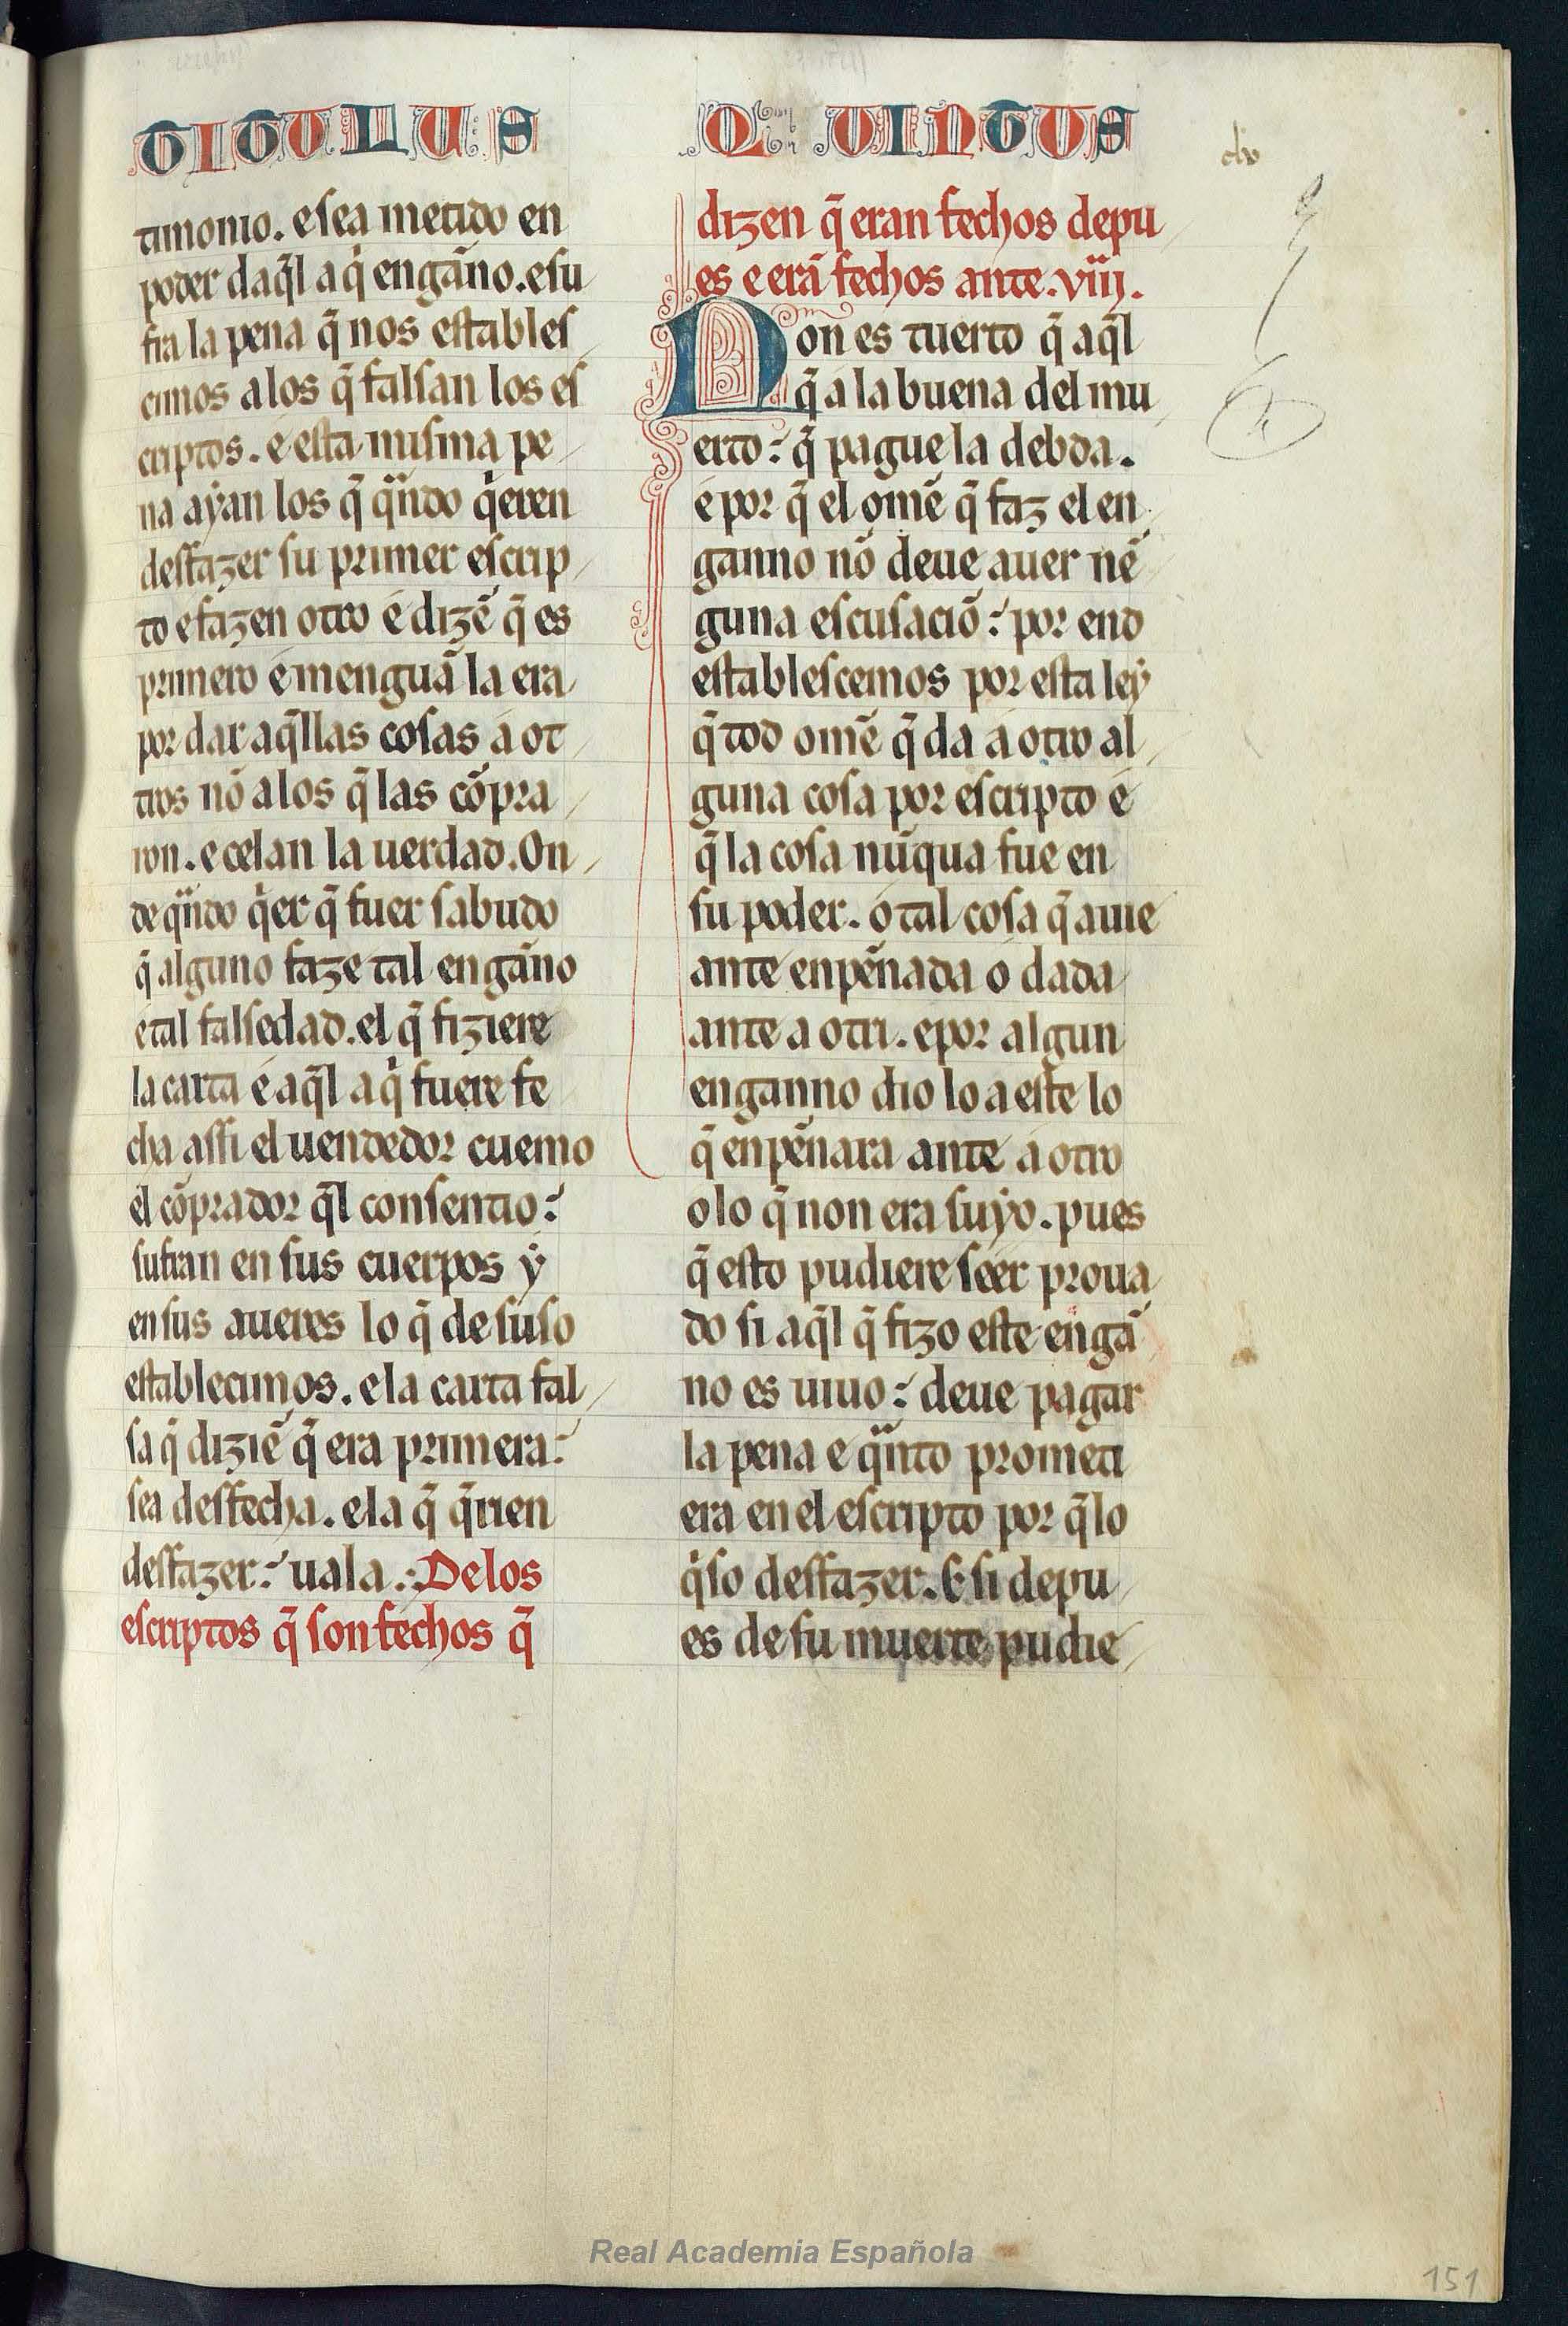 TITULUS QUINTUS
clv
timonio. e sea metido en
poder daq̃l a q̇ engãno. e su
fra la pena q̃ nos estableſ
cimos a los q̃ falsan los eſ
criptos. e esta misma pe
na ayan los q̃ qũdo q̇eren
desfazer su primer escrip
to e fazen otro e dizẽ q̃ es
primero e menguã la era
por dar aq̃llas cosas a ot
tros nõ a los q̃ las cõpra
ron. e celan la uerdad. On
de qũdo q̇er q̃ fuer sabudo
q̃ alguno faze tal engãno
e tal falsedad. el q̃ fiziere
la carta e aq̃l a q̇ fuere fe
cha assi el uendedor cuemo
el cõprador q̃l consentio:
sufran en sus cuerpos ẏ
en sus aueres lo q̃ de suso
establecimos. e la carta fal
sa q̃ diziẽ q̃ era primera:
sea desfecha. e la q̃ q̃rien
desfazer: uala. De los
escriptos q̃ son fechos q̃
dizen q̃ eran fechos depu
es e erã fechos ante. viij.
Non es tuerto q̃ aq̃l
q̃ a la buena del mu
erto: q̃ pague la debda.
e por q̃ el omẽ q̃ faz el en
ganno nõ deue auer nẽ
guna escusaciõ: por end
establescemos por esta leẏ
q̃ tod omẽ q̃ da a otro al
guna cosa por escripto e
q̃ la cosa nũqua fue en
su poder. o tal cosa q̃ auie
ante enpẽnada o dada
ante a otri. e por algun
enganno dio lo a este lo
q̃ enpẽnara ante a otro
o lo q̃ non era suẏo. pues
q̃ esto pudiere seer proua
do si aq̃l q̃ fizo este engã
no es uiuo: deue pagar
la pena e qũto prometi
era en el escripto por q̃ lo
q̇so desfazer. E si depu
es de su muerte pudie
Real Academia Española
151